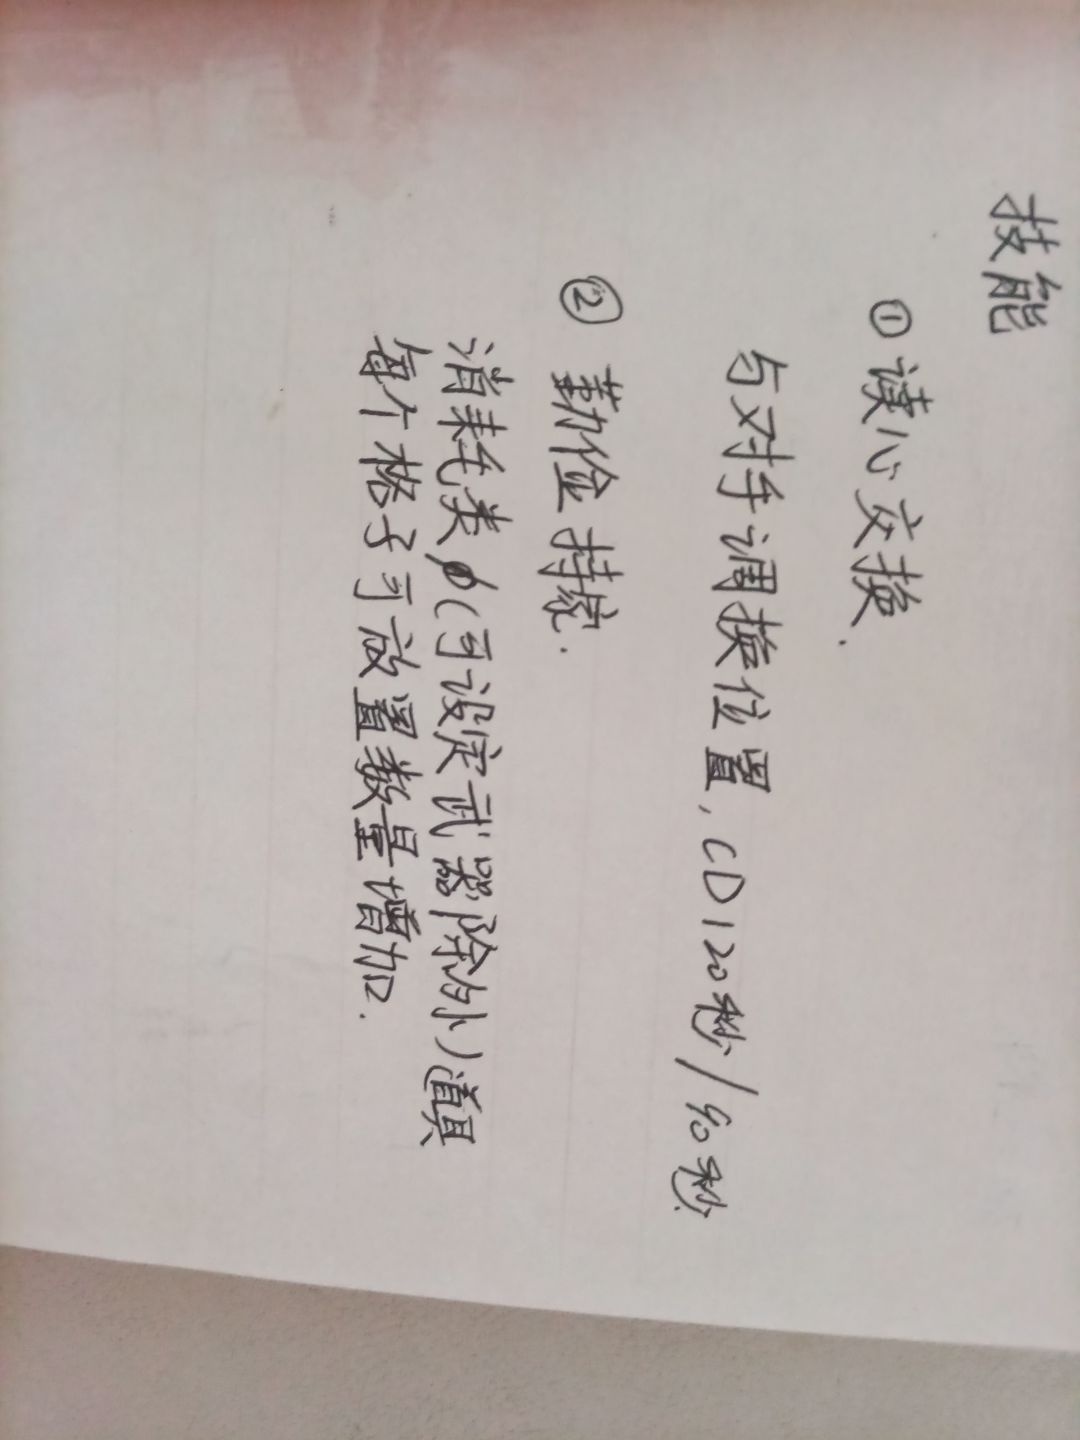 技能
① 读心交换.
与对手调换位置,CD120秒/90秒
② 勤俭持家.
消耗类(可设定武器除外)道具
每个格子可放置数量增加.